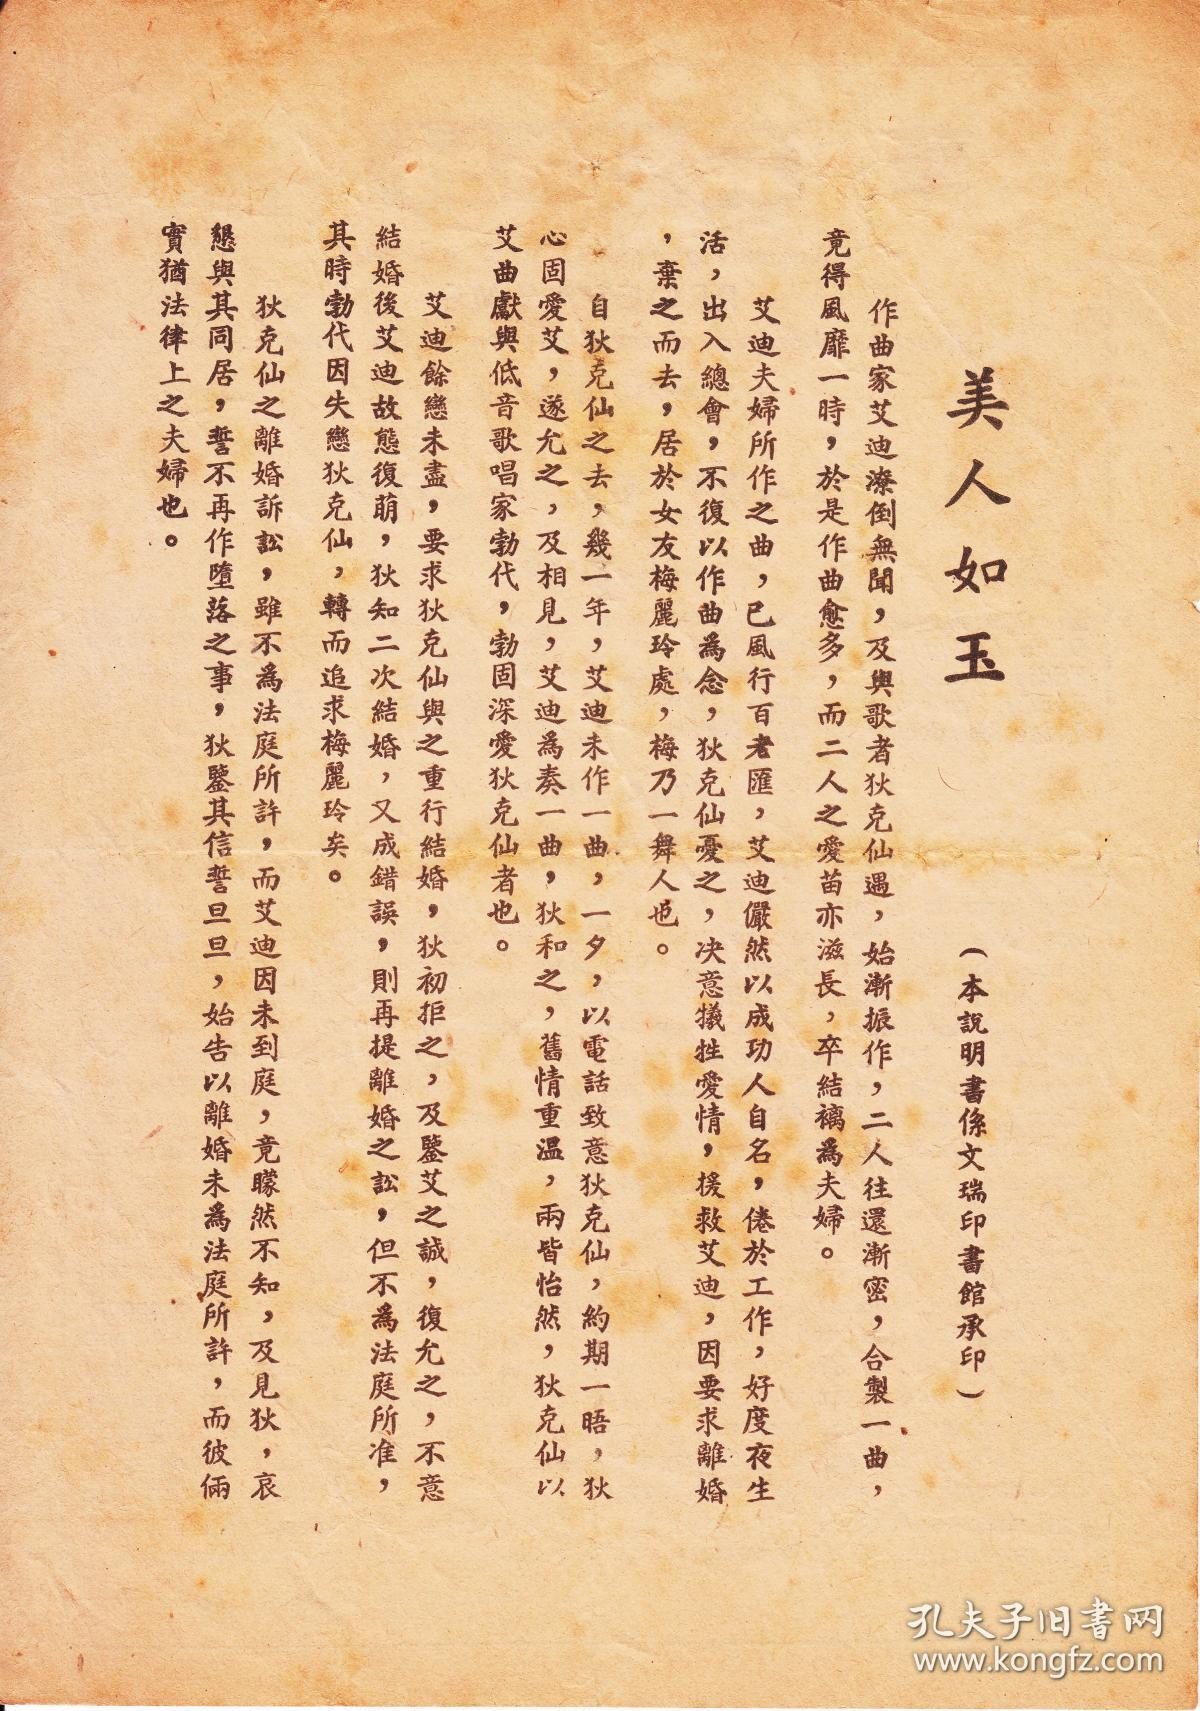 美人如玉
（本説明書係文瑞印書館承印）
作曲家艾迪潦倒無聞，及與歌者狄克仙遇，始漸振作，二人往還漸密，合製一曲，
竟得風靡一時，於是作曲愈多，而二人之愛苗亦滋長，卒結褵為夫婦。
艾迪夫婦所作之曲，已風行百老匯，艾迪儼然以成功人自名，倦於工作，好度夜生
活，出入總會，不復以作曲為念，狄克仙憂之，决意犧牲愛情，援救艾迪，因要求離婚
，棄之而去，居於女友梅麗玲處，梅乃一舞人也。
自狄克仙之去，幾一年，艾迪未作一曲，一夕，以電話致意狄克仙，約期一晤，狄
心固愛艾，遂允之，及相見，艾迪為奏一曲，狄和之，舊情重温，兩皆怡然，狄克仙以
艾曲獻與低音歌唱家勃代，勃固深愛狄克仙者也。
艾迪餘戀未盡，要求狄克仙與之重行結婚，狄初拒之，及鑒艾之誠，復允之，不意
結婚後艾迪故態復萌，狄知二次結婚，又成錯誤，則再提離婚之訟，但不為法庭所准，
其時勃代因失戀狄克仙，轉而追求梅麗玲矣。
狄克仙之離婚訴訟，雖不為法庭所許，而艾迪因未到庭，竟矇然不知，及見狄，哀
懇與其同居，誓不再作墮落之事，狄鑒其信誓旦旦，始告以離婚未為法庭所許，而彼倆
實猶法律上之夫婦也。
孔夫子旧书网
www.kongfz.com